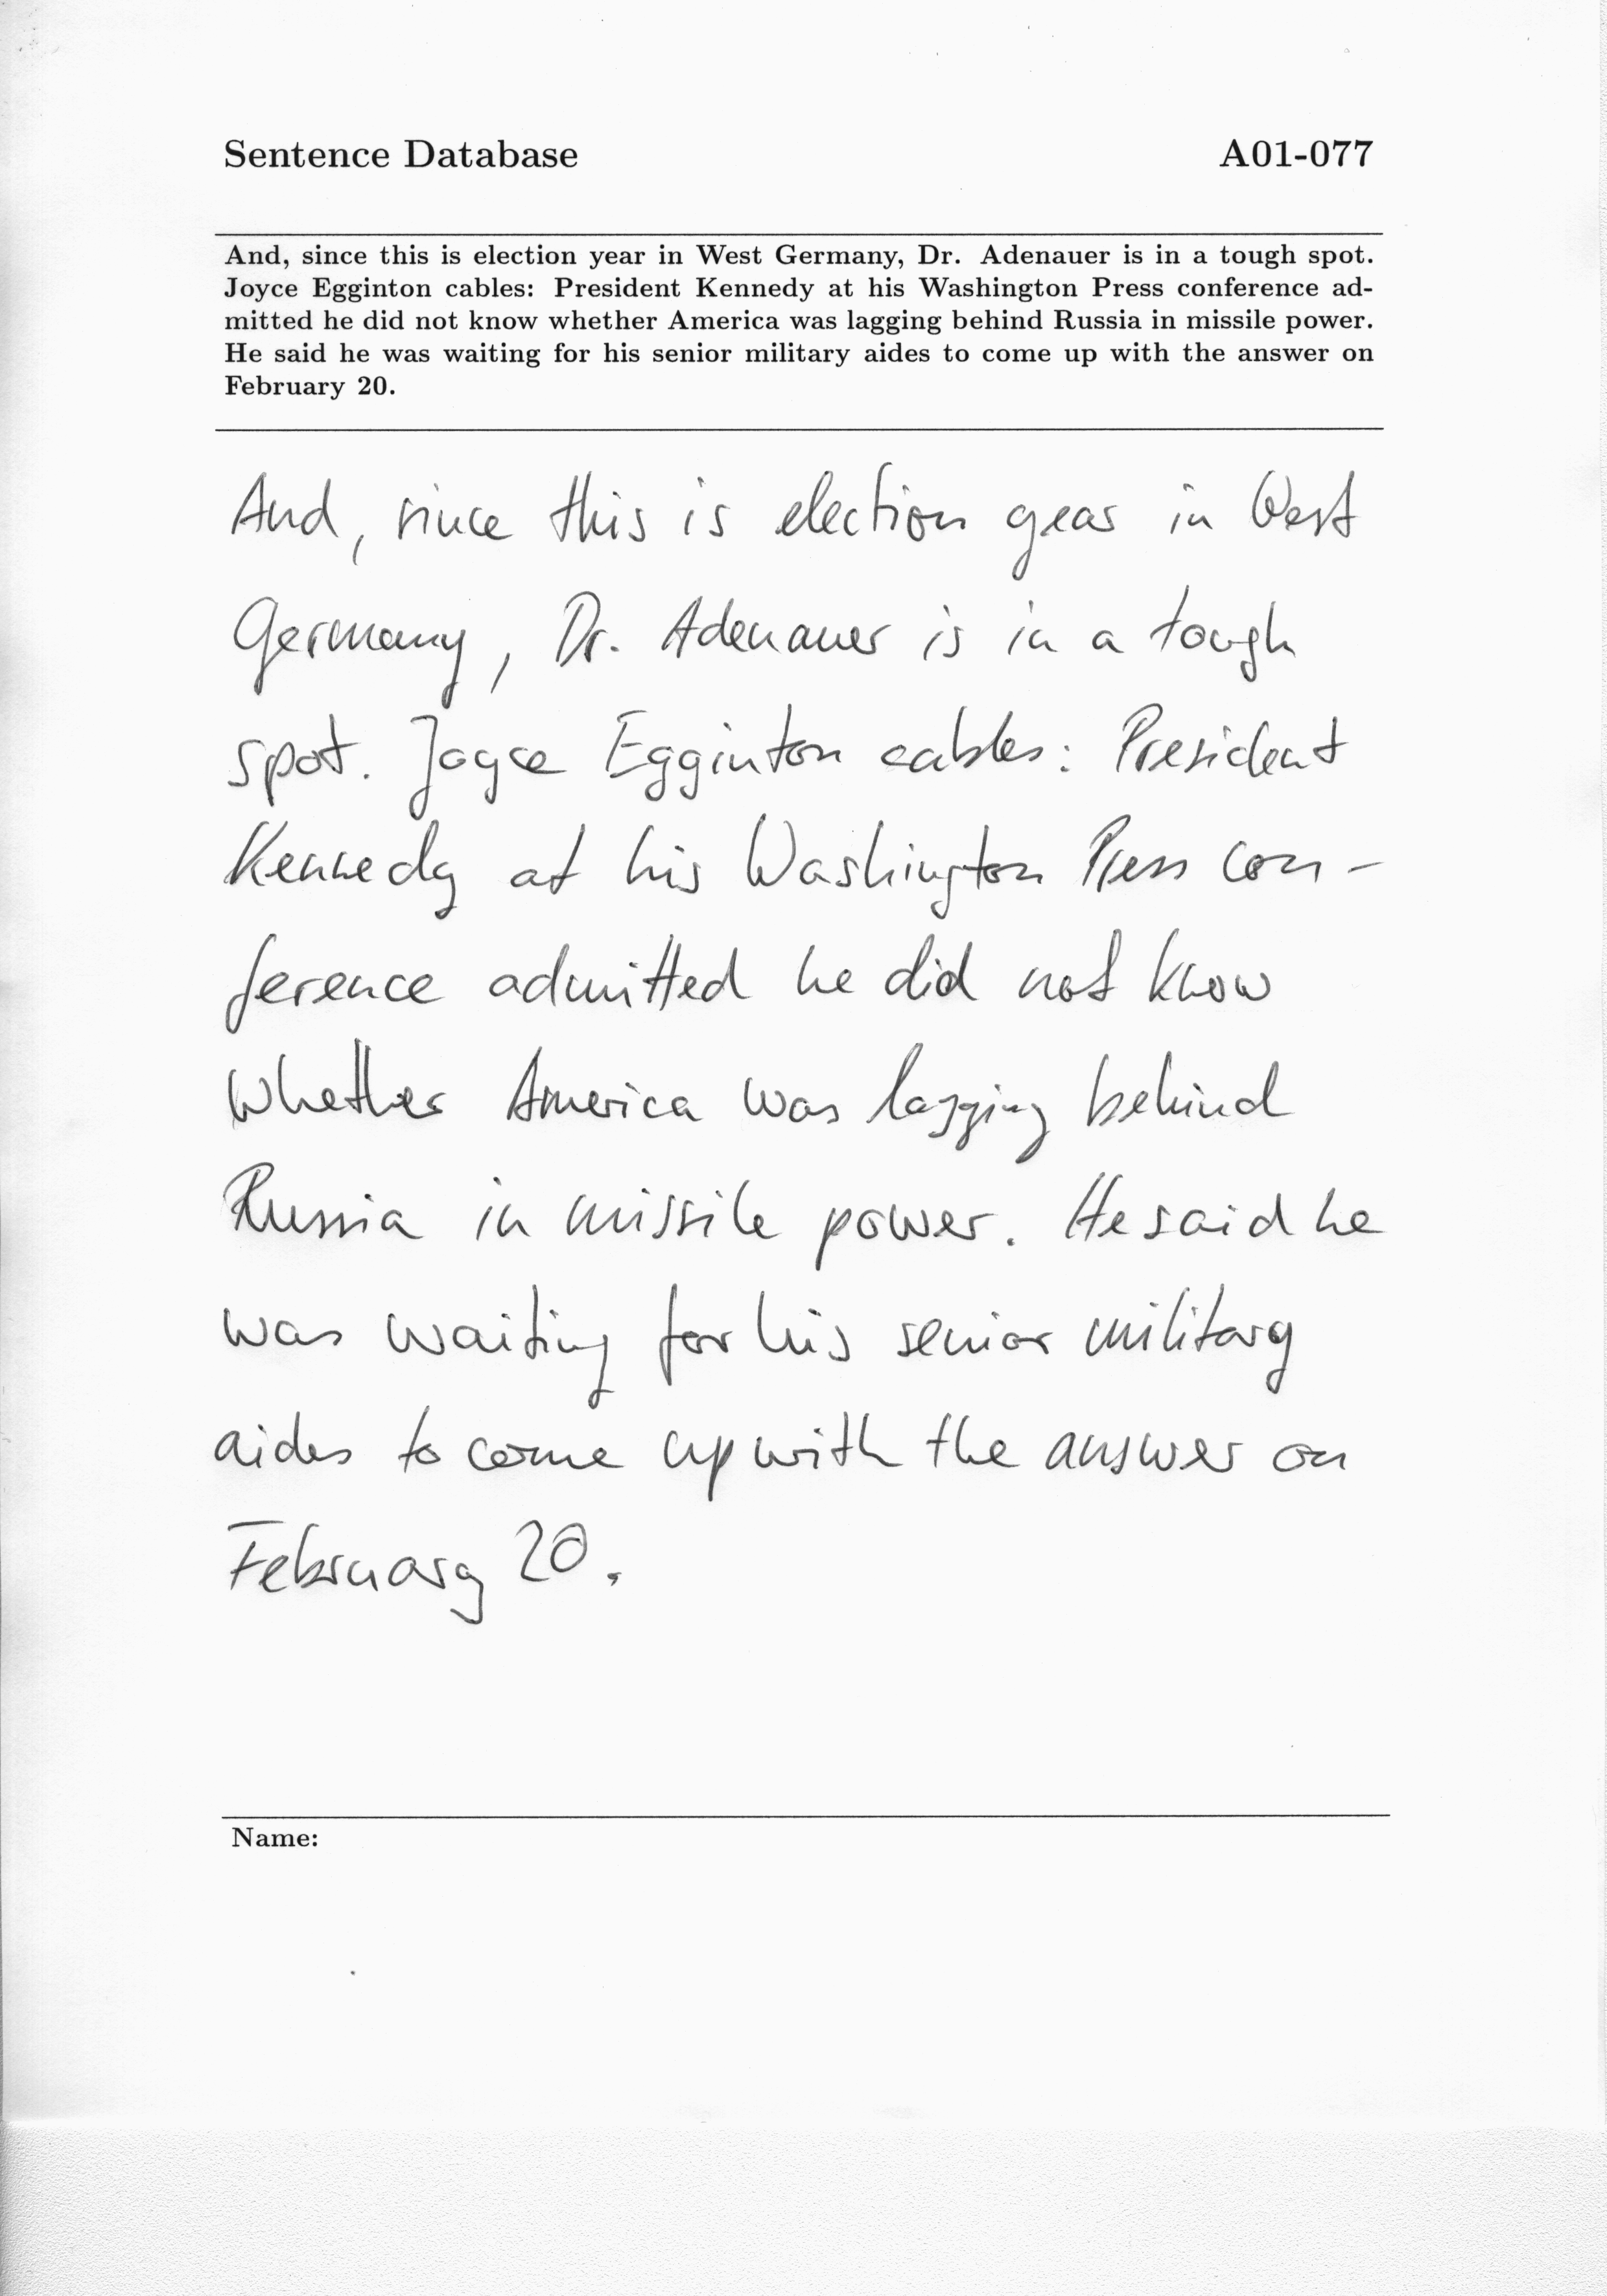 Sentence Database A01-077
And, since this is election year in West Germany, Dr. Adenauer is in a tough spot.
Joyce Egginton cables: President Kennedy at his Washington Press conference ad-
mitted he did not know whether America was lagging behind Russia in missile power.
He said he was waiting for his senior military aides to come up with the answer on
February 20.
And, since this is election year in West
Germany, Dr. Adenauer is in a tough
spot. Joyce Egginton cables: President
Kennedy at his Washington Press con-
ference admitted he did not know
whether America was lagging behind
Russia in missile power. He said he
was waiting for his senior military
aides to come up with the answer on
February 20.
Name: